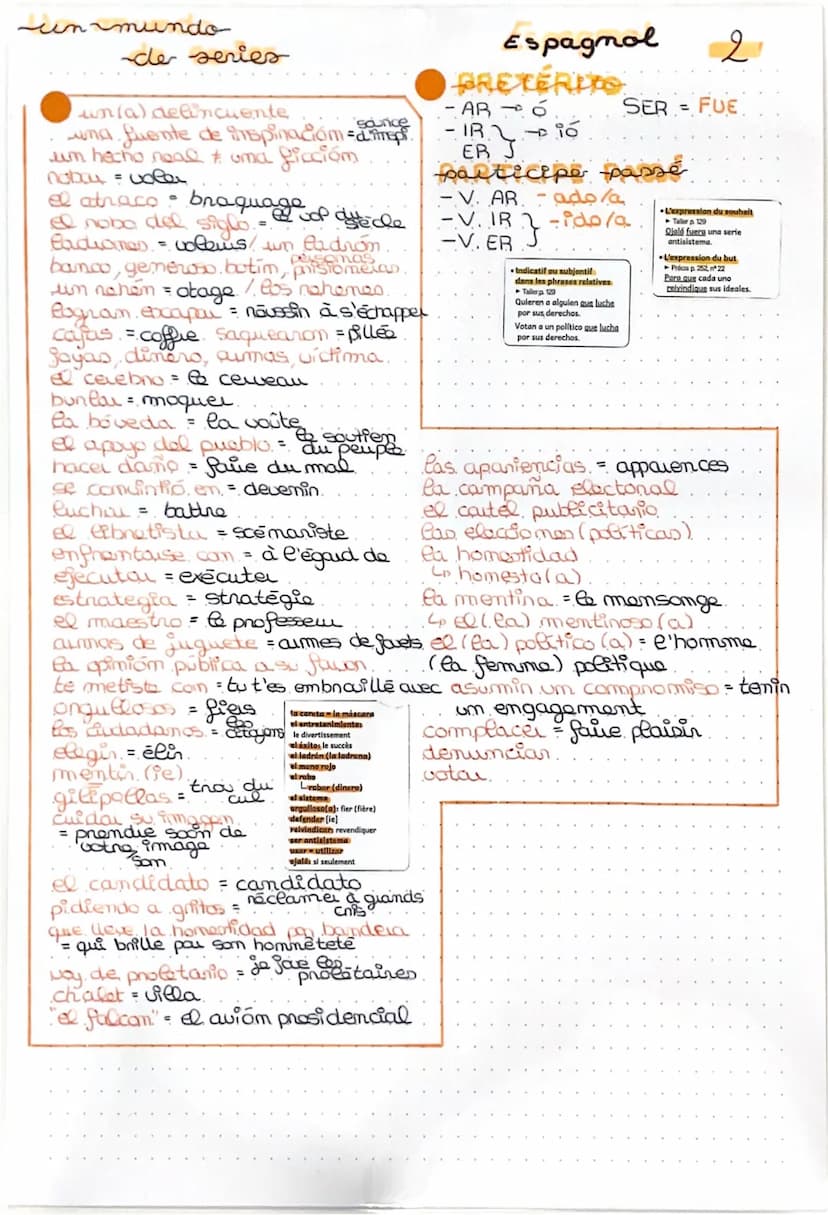 un mundo
de series
Espagnol
2
un(a) delincuente
una fuente de inspiración = source d'inspi.
un hecho real ≠ una ficción
robar = voler
el atraco = braquage
el robo del siglo = le vol du siècle
ladrones = voleurs / un ladrón
banco, generoso, botín, personas, prisioneras
un rehén = otage / los rehenes
logran escapar = réussir à s'échapper
cajas = coffre saquearon = pillée
joyas, dinero, armas, víctima
el cerebro = le cerveau
burlar = moquer
la bóveda = la voûte
el apoyo del pueblo = le soutien du peuple
hacer daño = faire du mal
se convirtió en = devenir
luchar = battre
el libretista = scénariste
enfrentarse con = à l'égard de
ejecutar = exécuter
estrategia = stratégie
el maestro = le professeur
armas de juguete = armes de jouets
la opinión pública a su favor
te metiste con = tu t'es embrouillé avec
orgullosos = fiers
los ciudadanos = les citoyens
elegir = élir
mentir (ie)
gilipollas = trou du cul
cuidar su imagen
= prendre soin de
votre image
son
la careta = la máscara
el entretenimiento:
le divertissement
el éxito: le succès
el ladrón (la ladrona)
el mono rojo
el robo
robar (dinero)
el sistema
orgulloso(a): fier (fière)
defender [ie]
reivindicar: revendiquer
ser antisistema
usar = utilizar
ojalá: si seulement
el candidato = candidato
pidiendo a gritos = réclamer à grands cris
que lleve la honestidad por bandera
= qui brille par son honnêteté
voy de proletario = je joue les prolétaires
chalet = villa
"el falcon" = el avión presidencial
PRETÉRITO
- AR → ó
SER = FUE
- IR
ER } → ió
PARTICIPE PASSÉ
participe passé
- V. AR - ado/a
- V. IR
- V. ER } - ido/a
• L'expression du souhait
► Taller p. 129
Ojalá fuera una serie
antisistema.
• L'expression du but
► Précis p. 252, n° 22
Para que cada uno
reivindique sus ideales.
• Indicatif ou subjonctif
dans les phrases relatives
► Taller p. 129
Quieren a alguien que luche
por sus derechos.
Votan a un político que lucha
por sus derechos.
las apariencias = apparences
la campaña electoral
el cartel publicitario
las elecciones (políticas)
la honestidad
↳ honesto(a)
la mentira = le mensonge
↳ el (la) mentiroso(a)
el (la) político(a) = l'homme
(la femme) politique
asumir un compromiso = tenir
un engagement
complacer = faire plaisir
denunciar
votar